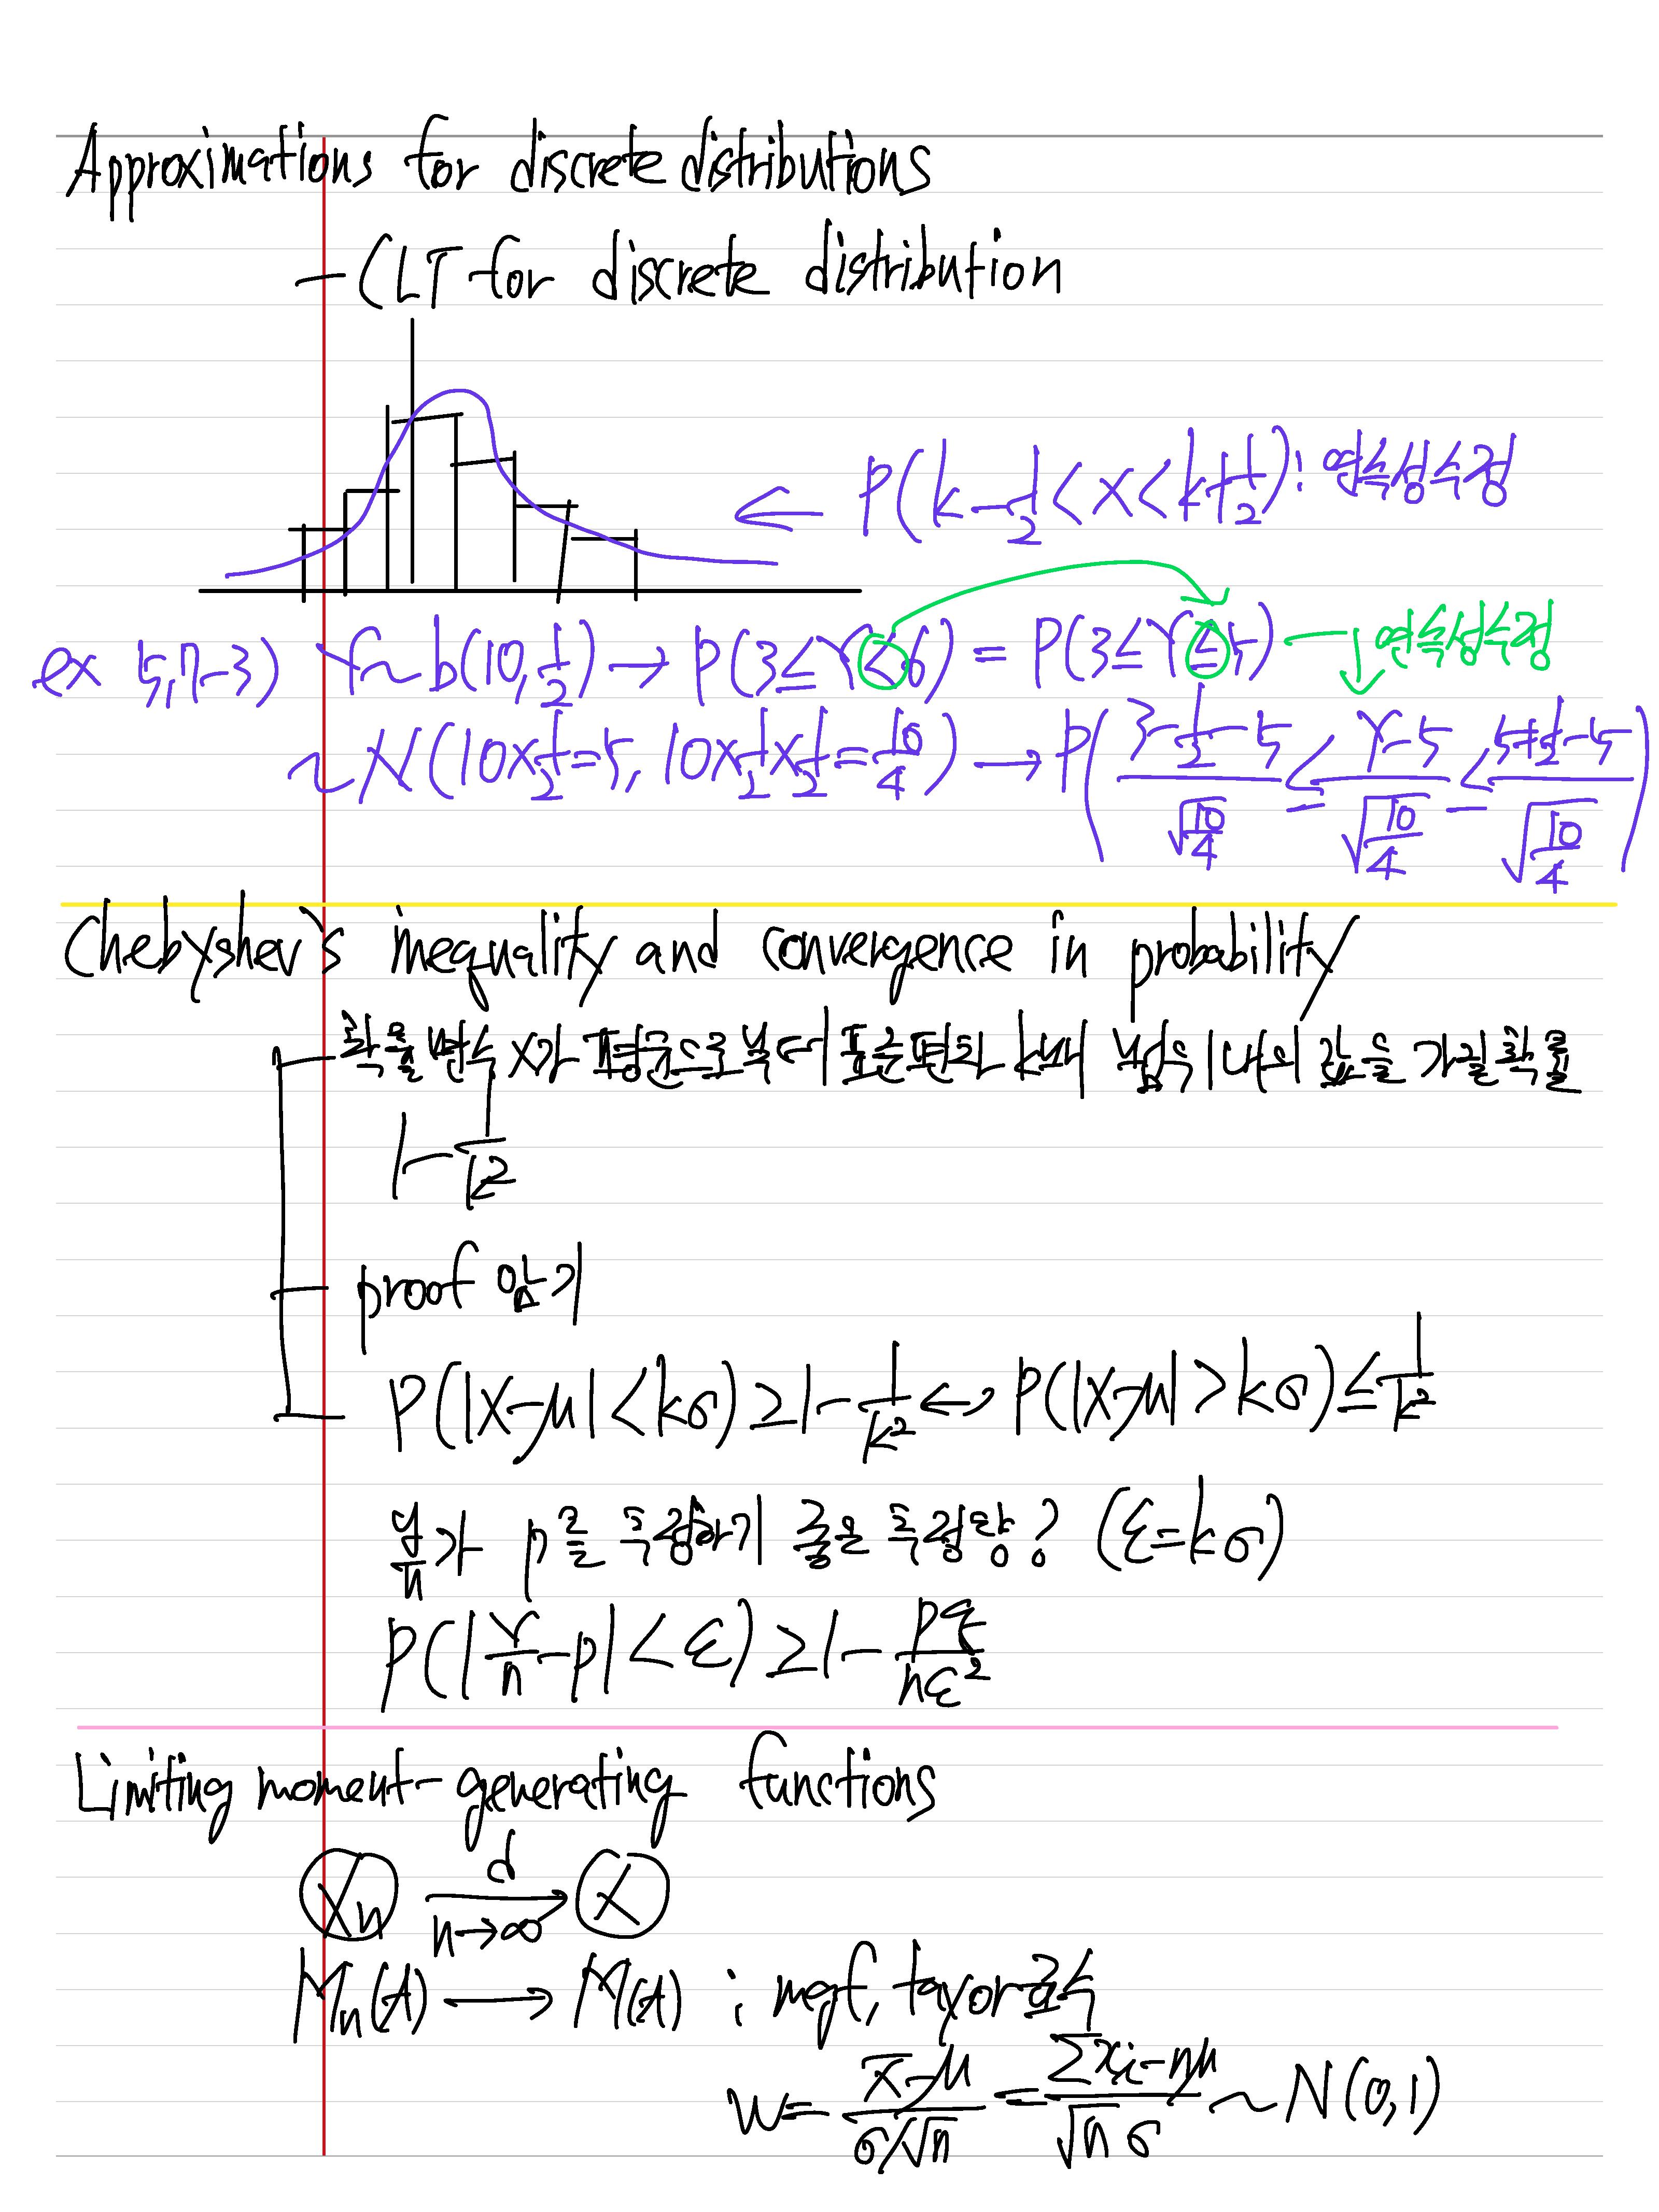 Approximations for discrete distributions
- CLT for discrete distribution
← P(k-1/2 < x < k+1/2) : 연속성수정
ex 5,7-3) Y~b(10, 1/2) → P(3≤Y<6) = P(3≤Y≤5) → 연속성수정
~N(10×1/2=5, 10×1/2×1/2=10/4) → P((3-1/2-5)/√(10/4) ≤ (Y-5)/√(10/4) ≤ (5+1/2-5)/√(10/4))
Chebyshev's inequality and convergence in probability
확률변수 X가 평균으로부터 표준편차 k배 범위내의 값을 가질확률
1-1/k²
proof 암기
P(|X-μ|<kσ) ≥ 1-1/k² ↔ P(|X-μ|>kσ) ≤ 1/k²
y/n가 p를 추정하기 좋은 추정량? (ε=kσ)
P(|Y/n-p|<ε) ≥ 1-pq/nε²
Limiting moment-generating functions
Xn d→ n→∞ X
Mn(t) → M(t) ; mgf, tayor급수
w = (x̄-μ)/(σ/√n) = (Σxi-nμ)/(√n σ) ~ N(0,1)